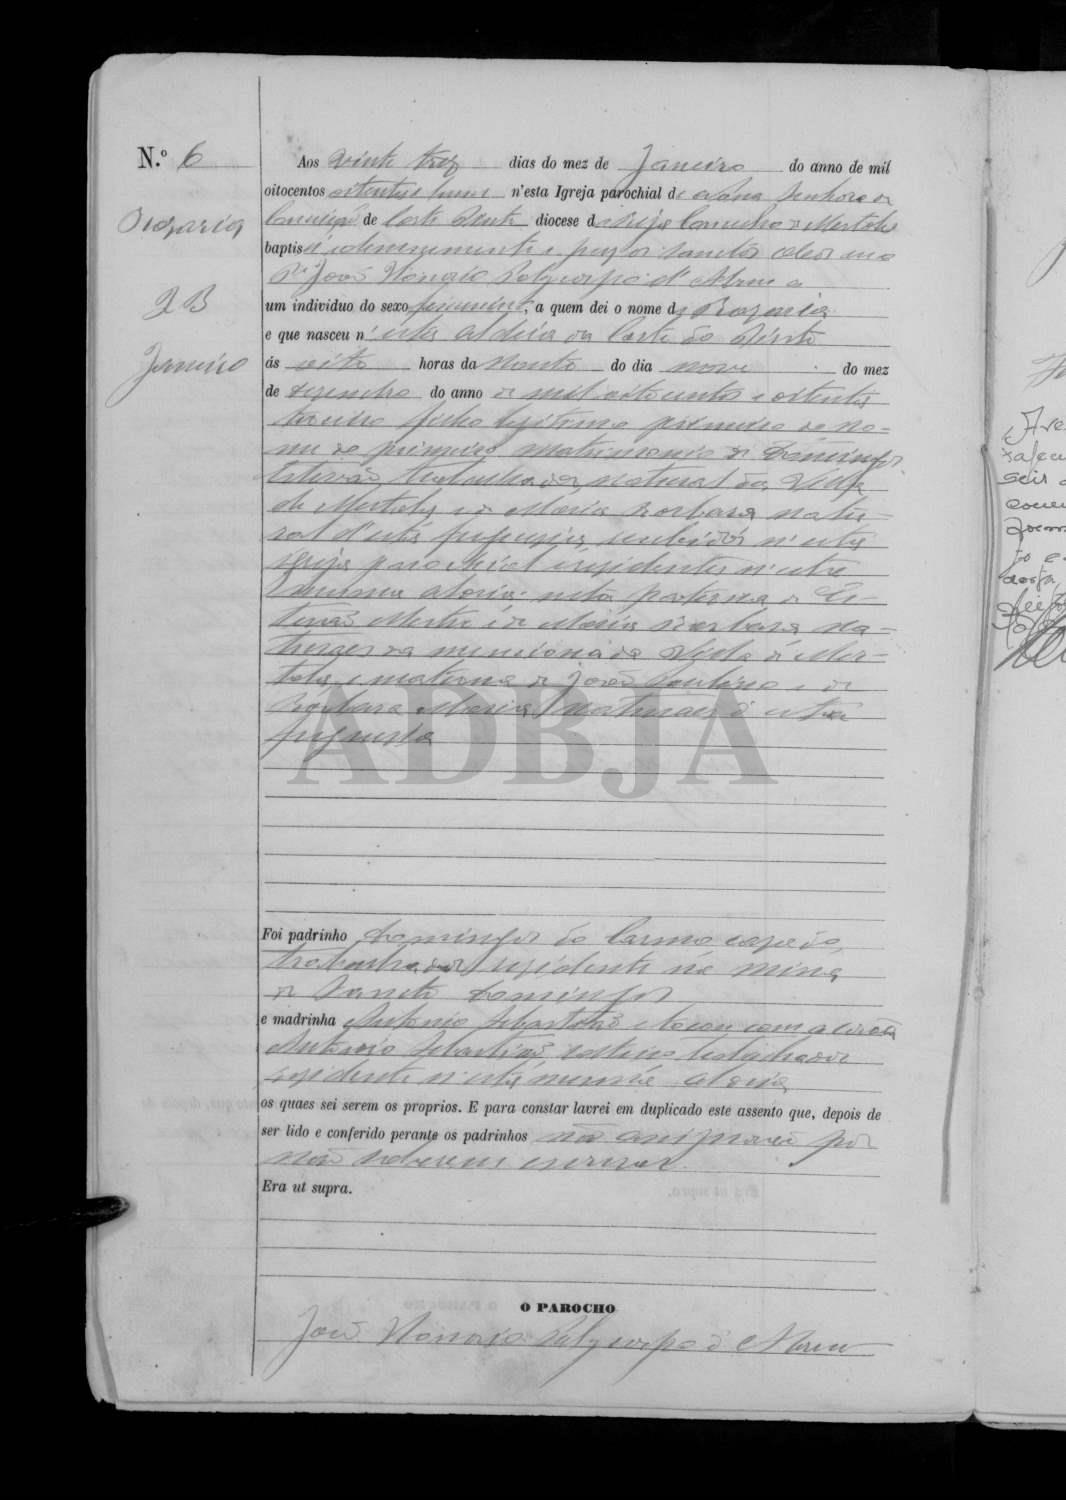 N.º 6
Aos vinte trez dias do mez de Janeiro do anno de mil
oitocentos oitenta e um n'esta Igreja parochial de Nossa Senhora da
Conceição de Corte do Pinto diocese de Beja Concelho de Mertola
baptisei solemnemente e puz os santos oleos eu o
P.e João Honorio Polycarpo d'Abreu a
um individuo do sexo feminino, a quem dei o nome de Rozaria
e que nasceu n'esta Aldeia da Corte do Pinto
ás oito horas da noute do dia nove do mez
de dezembro do anno de mil oitocentos e oitenta
filho legitimo primeiro do no-
me do primeiro matrimonio de Domingos
Estevão, trabalhador, natural da Villa
de Mertola e de Maria Barbara natu-
ral d'esta freguezia, recebidos n'esta
Igreja parochial e residentes n'esta
mesma aldeia: neta paterna de Es-
tevão Mestre e de Maria Barbara na-
turaes da mencionada Villa de Mer-
tola, e materna de João Paulino e de
Barbara Maria naturaes d'esta
freguezia
Foi padrinho Domingos do Carmo cazado,
trabalhador residente na mina
de Sancto Domingos
e madrinha Antonio Sebastião tocou com a corôa
Antonio Sebastião, solteiro trabalhador
residente n'esta mesma aldeia
os quaes sei serem os proprios. E para constar lavrei em duplicado este assento que, depois de
ser lido e conferido perante os padrinhos não assignarão por
não saberem escrever.
Era ut supra.
O PAROCHO
João Honorio Polycarpo d'Abreu
Rozaria
Janeiro
ADBJA